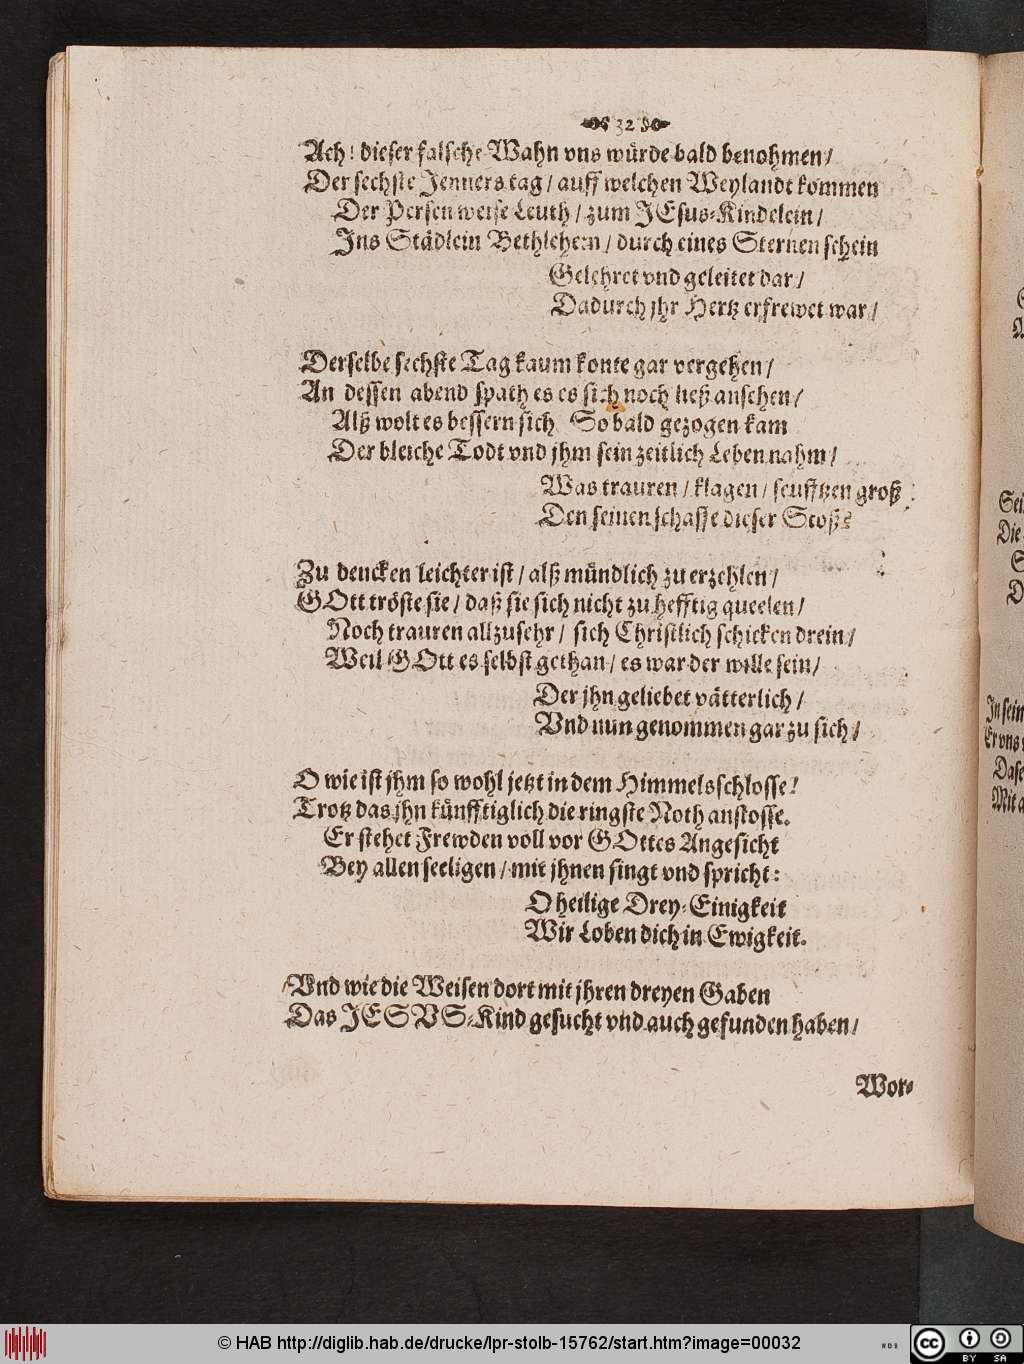 32
Ach! dieser falsche Wahn vns würde bald benohmen/
Der sechste Jenners tag/ auff welchen Weylandt kommen
Der Persen weise Leuth/ zum JEsus-Kindelein/
Ins Städlein Bethlehem/ durch eines Sternen schein
Gelehret vnd geleitet dar/
Dadurch jhr Hertz erfrewet war/
Derselbe sechste Tag kaum konte gar vergehen/
An dessen abend spath es es sich noch ließ ansehen/
Alß wolt es bessern sich So bald gezogen kam
Der bleiche Todt vnd jhm sein zeitlich Leben nahm/
Was trauren/ klagen/ seufftzen groß
Den seinen schaffe dieser Stoß?
Zu dencken leichter ist/ alß mündlich zu erzehlen/
GOtt tröste sie/ daß sie sich nicht zu hefftig queelen/
Noch trauren allzusehr/ sich Christlich schicken drein/
Weil GOtt es selbst gethan/ es war der wille sein/
Der jhn geliebet vätterlich/
Vnd nun genommen gar zu sich/
O wie ist jhm so wohl jetzt in dem Himmelsschlosse!
Trotz das jhn künfftiglich die ringste Noth anstosse.
Er stehet Frewden voll vor GOttes Angesicht
Bey allen seeligen/ mit jhnen singt vnd spricht:
O heilige Drey-Einigkeit
Wir Loben dich in Ewigkeit.
Vnd wie die Weisen dort mit jhren dreyen Gaben
Das JESVS-Kind gesucht vnd auch gefunden haben/
Wor-
Sei
Die
In sein
Er vns
Dase
Mit a
© HAB http://diglib.hab.de/drucke/lpr-stolb-15762/start.htm?image=00032
WDB
cc
BY SA